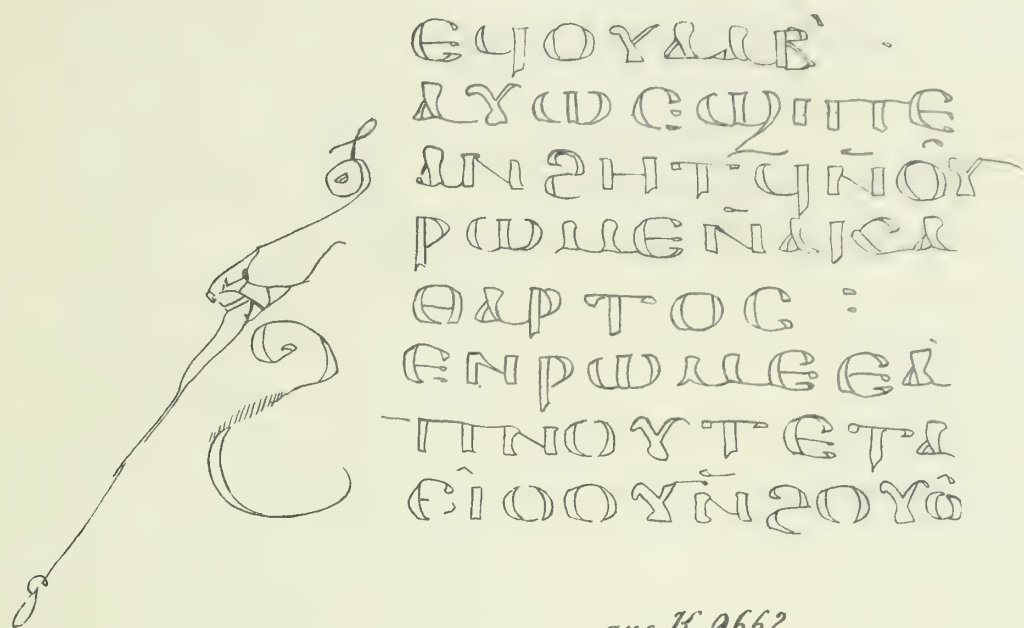 ⲉϥⲟⲩⲁⲁⲃ̀ ·
ⲁⲩⲱⲉϣⲓⲡⲉ
ⲁⲛϩⲏⲧ·ϥ̄ⲛ̄ⲟ̂ⲩ
ⲣⲱⲙⲉⲛ̄ⲁⲕⲁ
ⲑⲁⲣⲧⲟⲥ :
ⲉⲛⲣⲱⲙⲉⲉⲁ̇
ⲡⲛⲟⲩⲧⲉⲧⲁ
ⲉⲓ̂ⲟⲟⲩⲛ̄ϩⲟⲩⲟ̂
K 9662